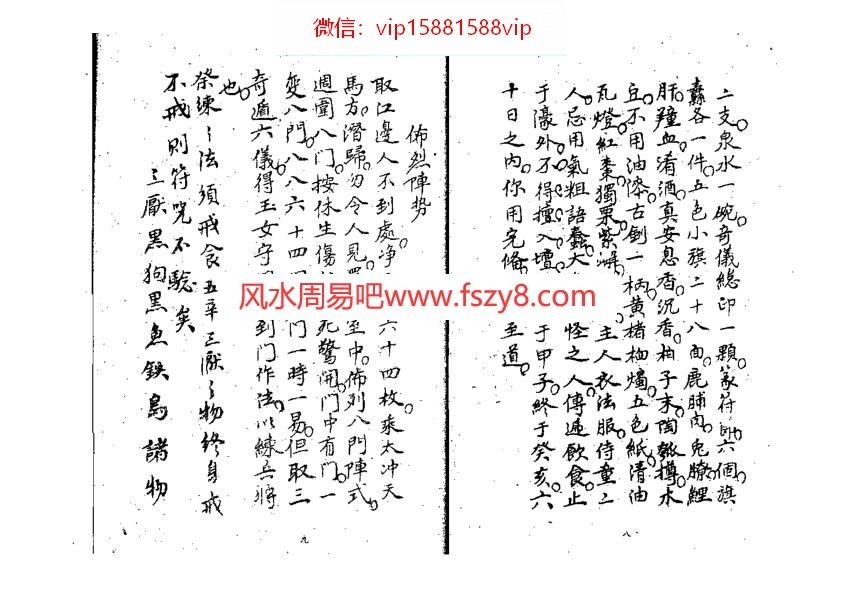 微信：vip15881588vip
二支泉水一碗奇儀總印一顆篆符印六個旗
纛各一件五色小旗二十八面鹿脯肉兔
肝血酒真安息香沉香柏子末水
豆不用油古劍一柄黃燭五色紙清油
瓦燈紅棗獨栗紫主人衣法服侍童二
人忌用氣粗語蠢大怪之人傳遞飲食止
于濠外不得擅入壇于甲子終于癸亥六
十日之內你用完俻至道
八
佈烈陣勢
取江邊人不到處净六十四枚乘太冲天
馬方潛歸勿令人見至中佈列八門陣式
週圍八门按休生傷死驚開門中有门一
变八門八八六十四门一時一易但取三
奇遁六儀得玉女守到门作法以練兵將
也
祭練之法須戒食五辛三厭之物終身戒
不戒則符咒不驗矣
三厭黑狗黑魚鉄鳥諸物
九
风水周易吧www.fszy8.com